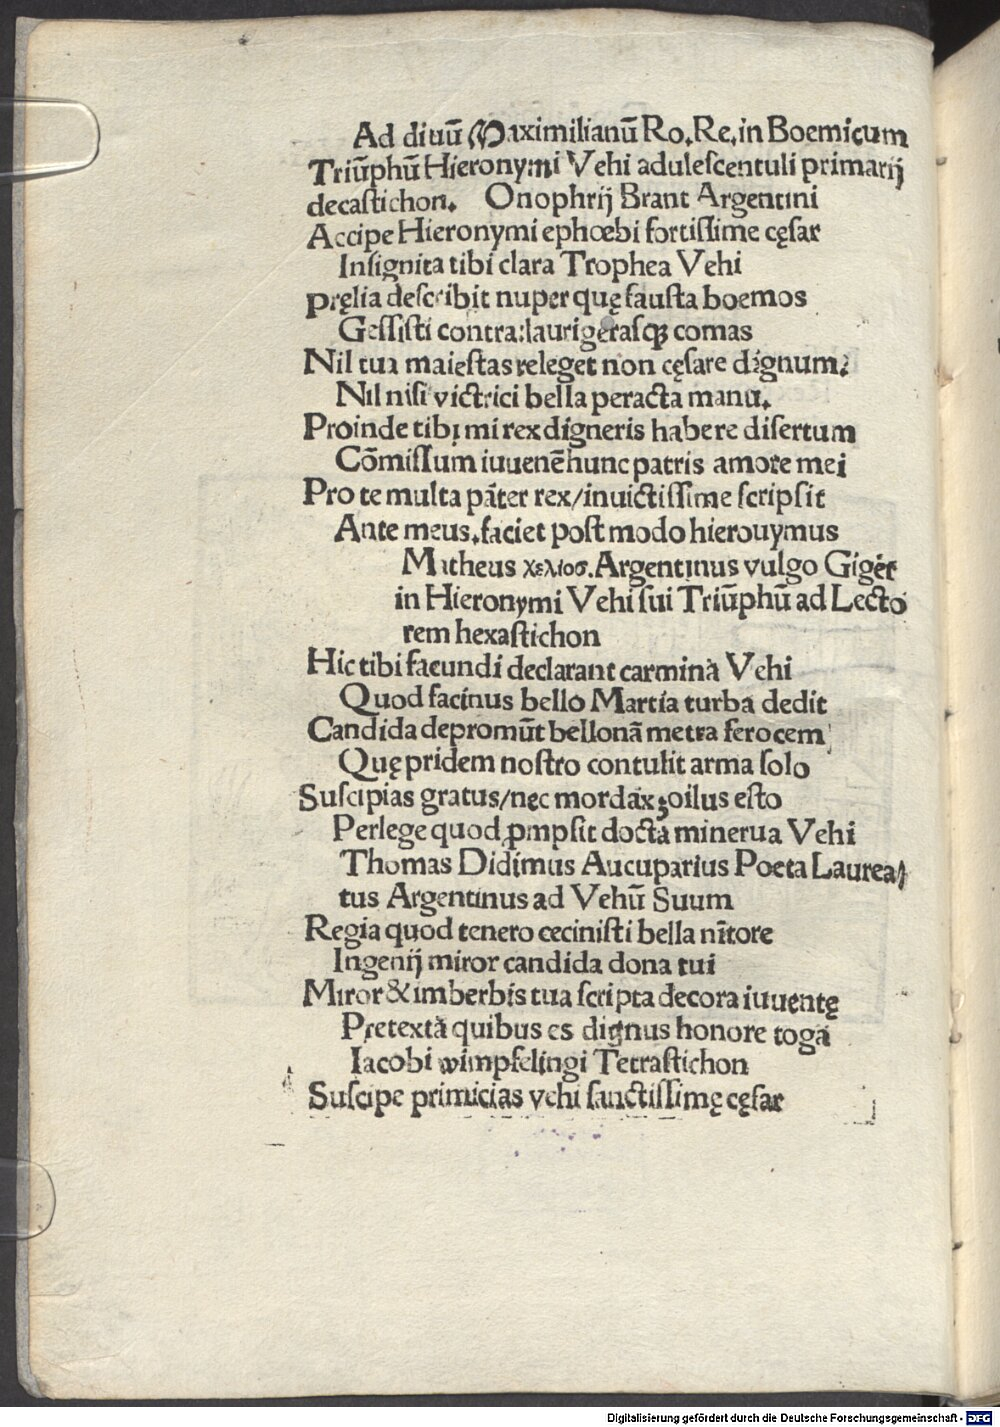 Ad diuū Maximilianū Ro. Re. in Boemicum
Triūphū Hieronymi Vehi adulescentuli primarij
decastichon. Onophrij Brant Argentini
Accipe Hieronymi ephœbi fortissime cęsar
Insignita tibi clara Trophea Vehi
Pręlia describit nuper quę fausta boemos
Gessisti contra: laurigerasqꝫ comas
Nil tua maiestas releget non cęsare dignum:
Nil nisi victrici bella peracta manu.
Proinde tibi mi rex digneris habere disertum
Cōmissum iuuenē hunc patris amore mei
Pro te multa pāter rex/inuictissime scripsit
Ante meus. faciet post modo hierouymus
Matheus χελιοσ. Argentinus vulgo Giger
in Hieronymi Vehi sui Triūphū ad Lecto
rem hexastichon
Hic tibi facundi declarant carmina Vehi
Quod facinus bello Martia turba dedit
Candida depromūt bellonā metra ferocem
Quę pridem nostro contulit arma solo
Suscipias gratus/nec mordax ʒoilus esto
Perlege quod ꝓmpsit docta minerua Vehi
Thomas Didimus Aucuparius Poeta Laurea/
tus Argentinus ad Vehū Suum
Regia quod tenero cecinisti bella nitore
Ingenij miror candida dona tui
Miror & imberbis tua scripta decora iuuentę
Pretexta quibus es dignus honore toga
Iacobi wimpfelingi Tetrastichon
Suscipe primicias vehi sanctissimę cęsar
Digitalisierung gefördert durch die Deutsche Forschungsgemeinschaft - DFG